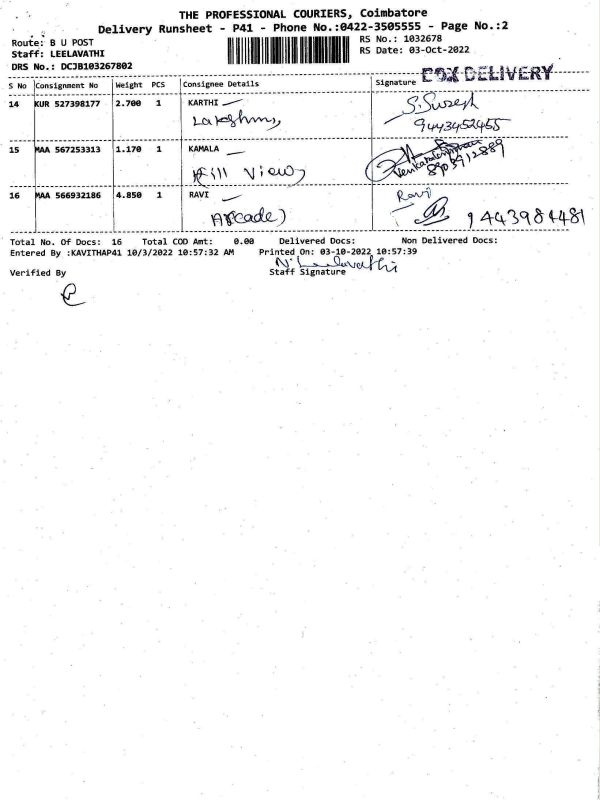 THE PROFESSIONAL COURIERS, Coimbatore
Delivery Runsheet - P41 - Phone No.:0422-3505555 - Page No.:2
Route: B U POST
RS No.: 1032678
Staff: LEELAVATHI
RS Date: 03-Oct-2022
DRS No.: DCJB103267802
BOX DELIVERY
S No Consignment No Weight PCS Consignee Details Signature
14 KUR 527398177 2.700 1 KARTHI — S. Suresh
9443452455
15 MAA 567253313 1.170 1 KAMALA — Venkatalakshmi
Hill View) 8903912889
16 MAA 566932186 4.850 1 RAVI — Ravi
Arcade) 9443984481
Total No. Of Docs: 16 Total COD Amt: 0.00 Delivered Docs: Non Delivered Docs:
Entered By :KAVITHAP41 10/3/2022 10:57:32 AM Printed On: 03-10-2022 10:57:39
N. Leelavathi
Verified By Staff Signature